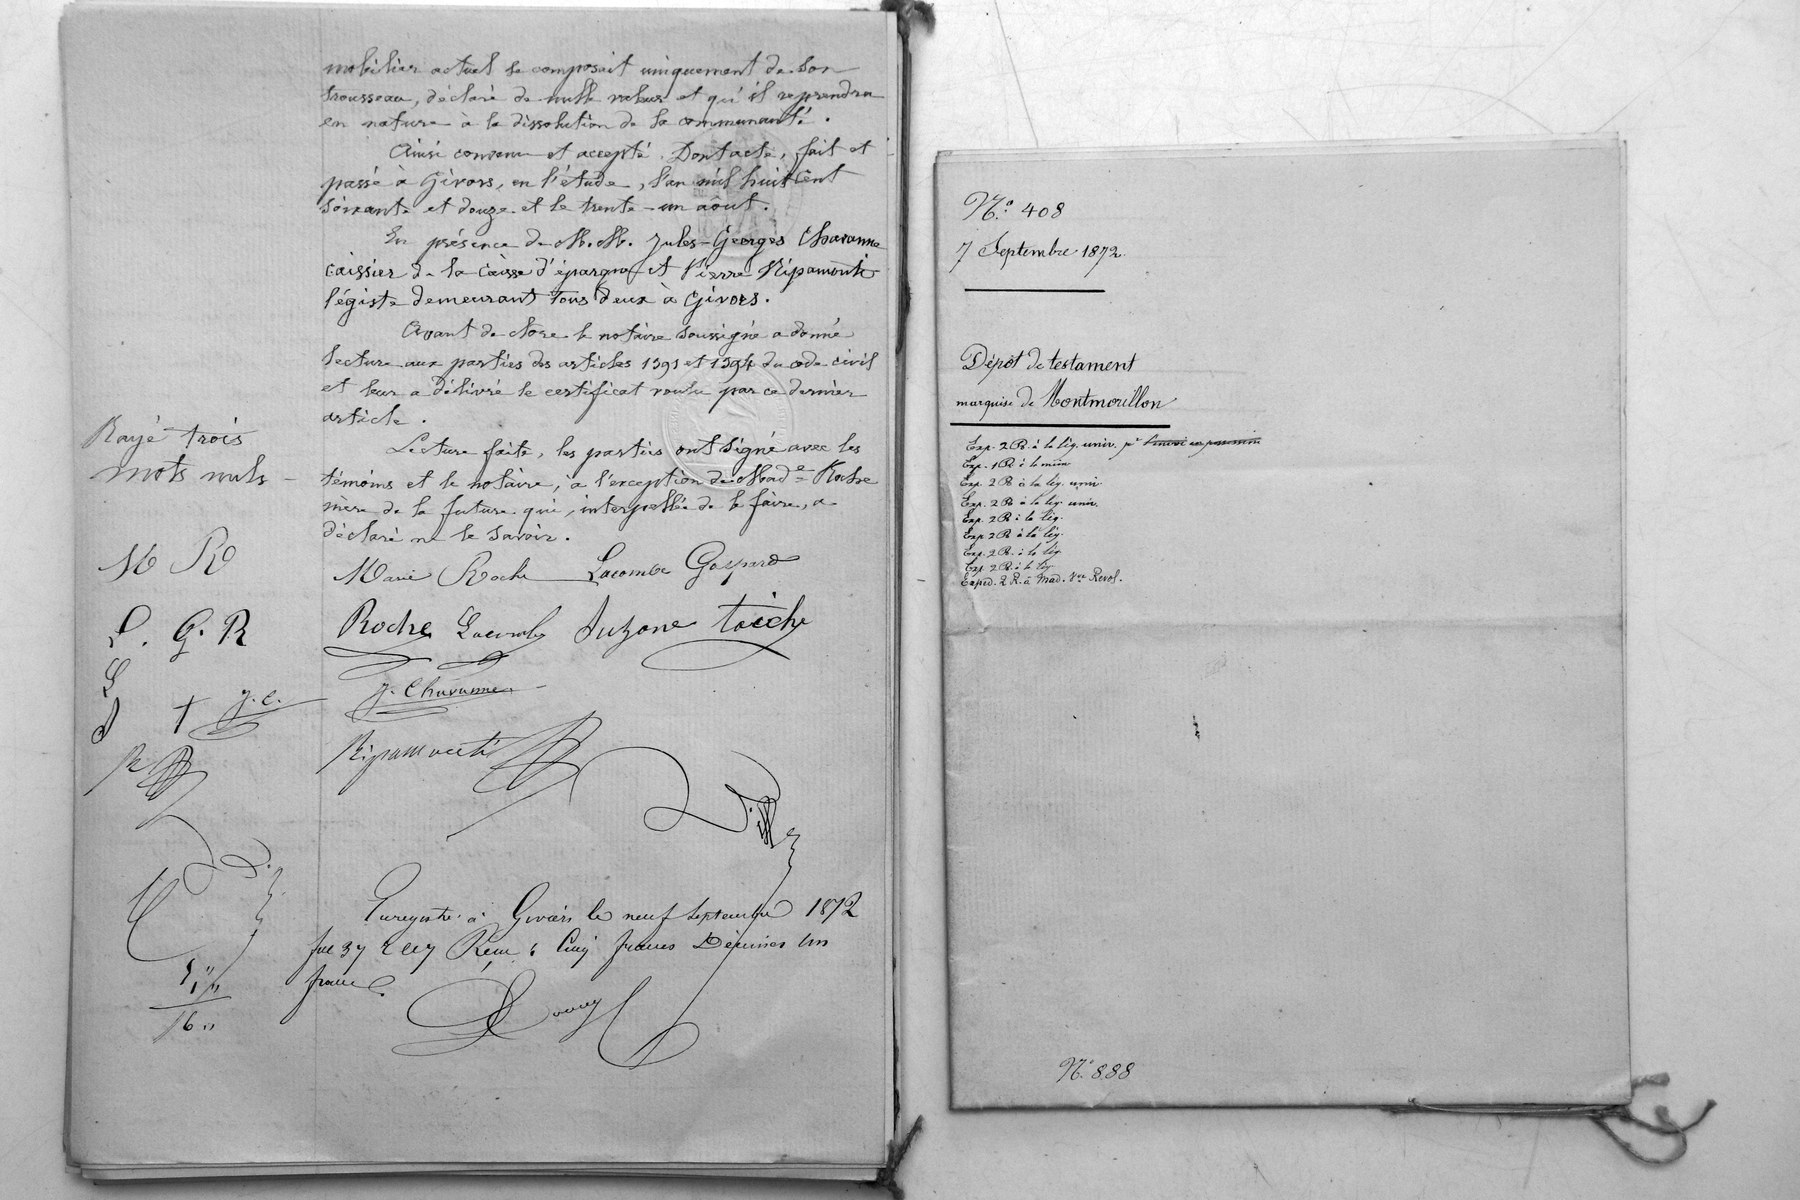 mobilier actuel se composait uniquement de son
trousseau, déclaré de nulle valeur et qu'il reprendra
en nature à la dissolution de la communauté.
Ainsi convenu et accepté. Dont acte, fait et
passé à Givors, en l'étude, l'an mil huit cent
soixante et douze et le trente-un août.
En présence de M.M. Jules-Georges Chavanne
caissier de la caisse d'épargne et Pierre Ripamonti
légiste demeurant tous deux à Givors.
Avant de clore le notaire soussigné a donné
lecture aux parties des articles 1391 et 1394 du code civil
et leur a délivré le certificat voulu par ce dernier
article.
Lecture faite, les parties ont signé avec les
témoins et le notaire, à l'exception de Made Roche
mère de la future qui, interpellée de le faire, a
déclaré ne le savoir.
Rayé trois
mots nuls
M R
L. G. R
L
J. C.
R
Marie Roche Lacombe Gaspard
Roche Lacombe Suzanne
J. Chavanne
Ripamonti
Enregistré à Givors le neuf septembre 1872
Reçu Cinq francs Décimes un
franc
N.° 408
7 Septembre 1872.
Dépôt de testament
marquise de Montmorillon
Exp. 2 R. à la lég. univ. pr
Exp. 1 R. à la mm
Exp. 2 R à la lég. univ.
Exp. 2 R à la lég. univ.
Exp. 2 R à la lég.
Exp. 2 R à la lég.
Exp. 2 R. à la lég.
Exp 2 R. à la lég
Expéd. 2 R. à Mad. Vve Revol.
N.° 888